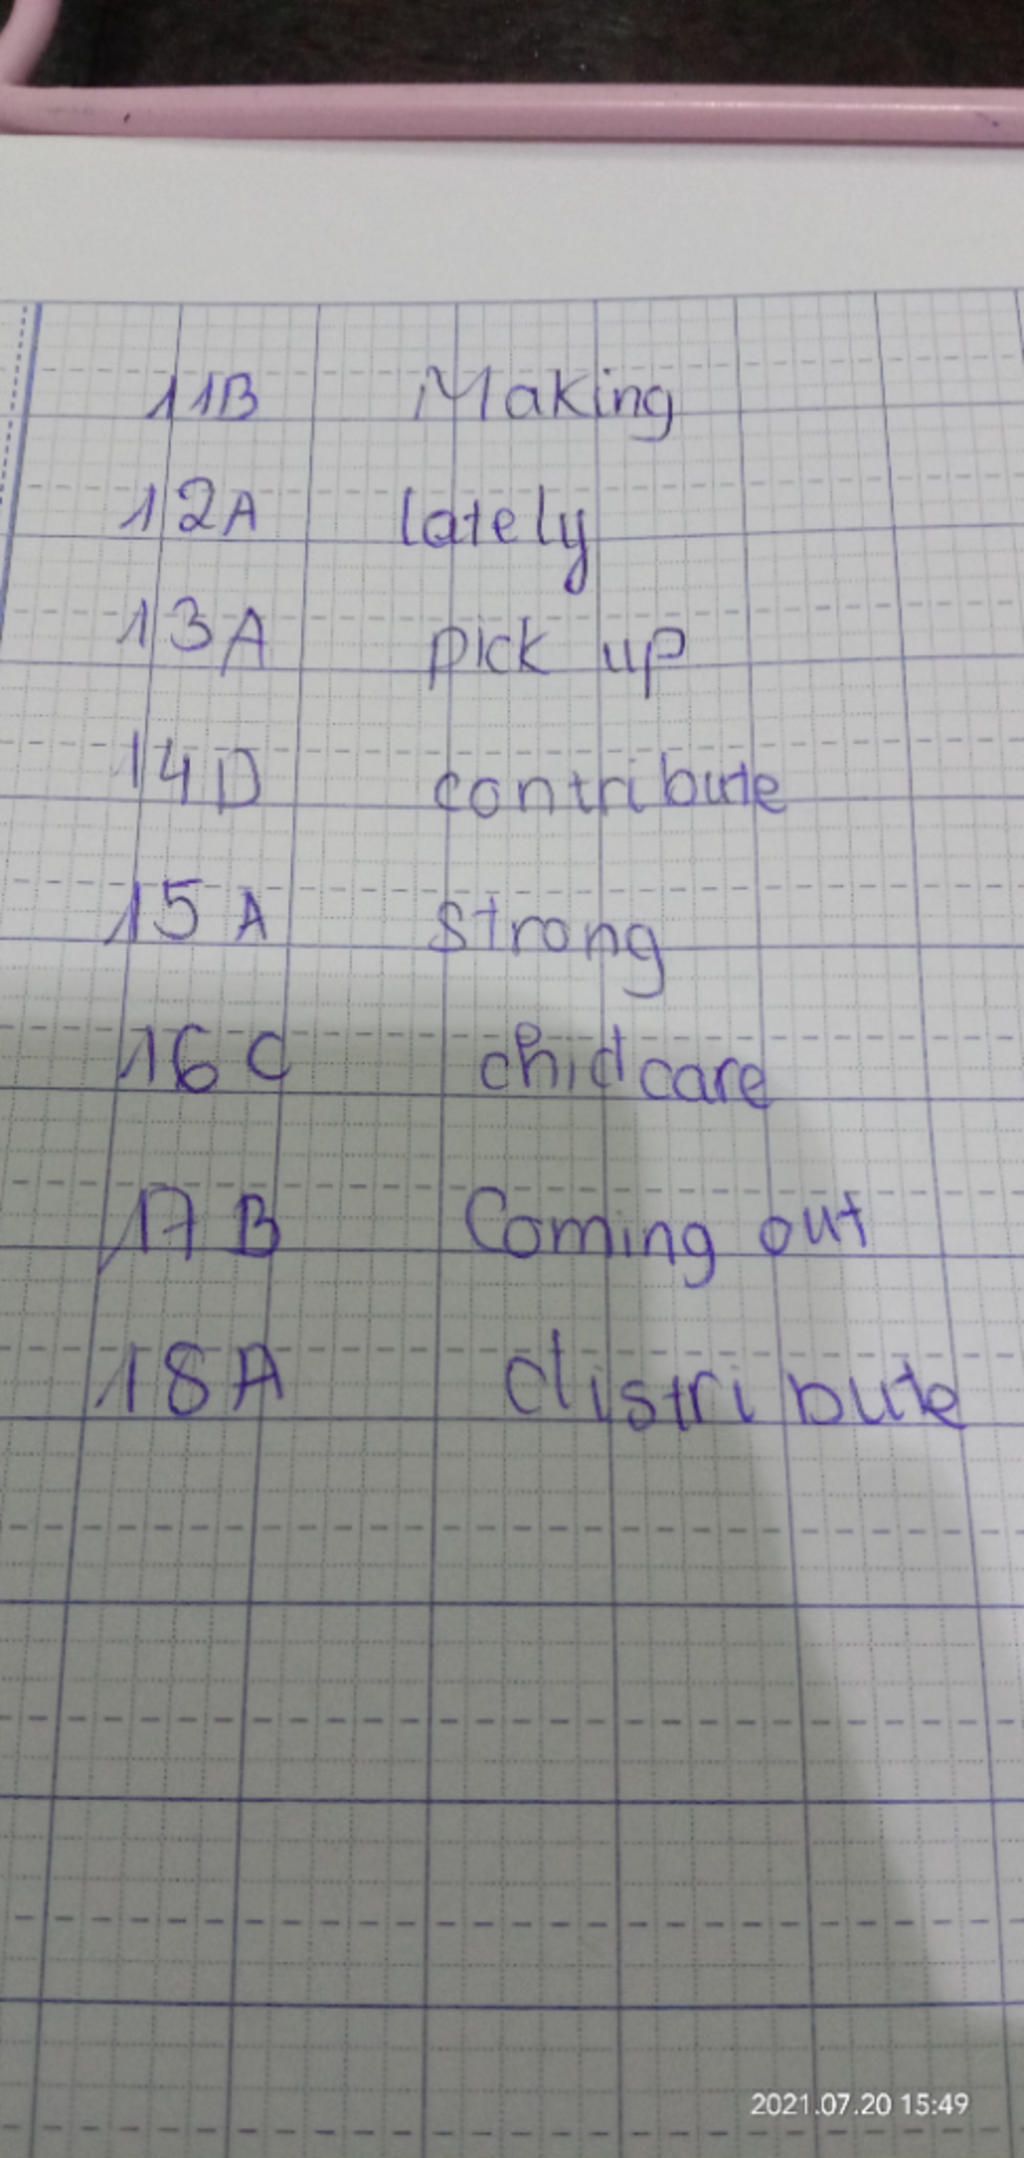 11B Making
12A lately
13A pick up
14D contribute
15A strong
16C chidcare
17B Coming out
18A distribute
2021.07.20 15:49